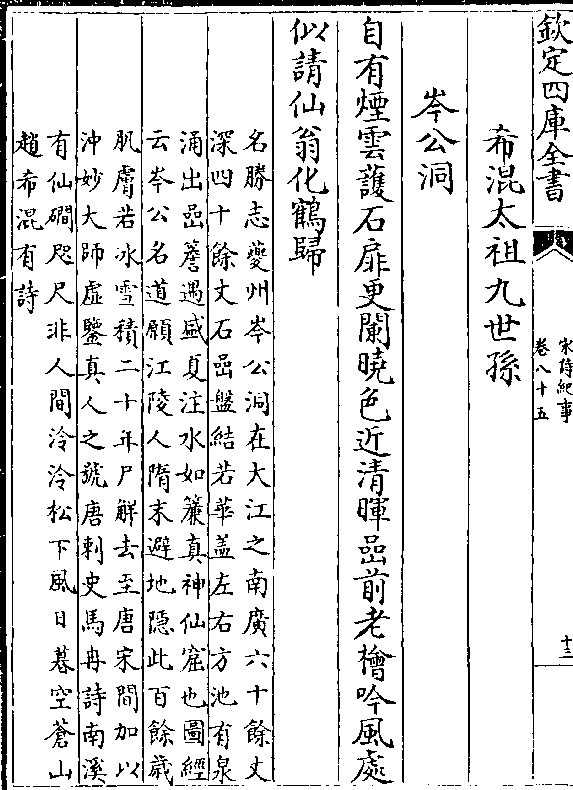 欽定四庫全書
宋詩紀事
卷八十五
十三
希混太祖九世孫
岑公洞
自有煙雲護石扉更闌曉色近清暉嵒前老檜吟風處
似請仙翁化鶴歸
名勝志夔州岑公洞在大江之南廣六十餘丈
深四十餘丈石嵒盤結若華盖左右方池有泉
涌出嵒簷遇盛夏注水如簾真神仙窟也圖經
云岑公名道願江陵人隋末避地隱此百餘歲
肌膚若冰雪積二十年尸解去至唐宋間加以
沖妙大師虛鑒真人之號唐刺史馬冉詩南溪
有仙磵咫尺非人間泠泠松下風日暮空蒼山
趙希混有詩